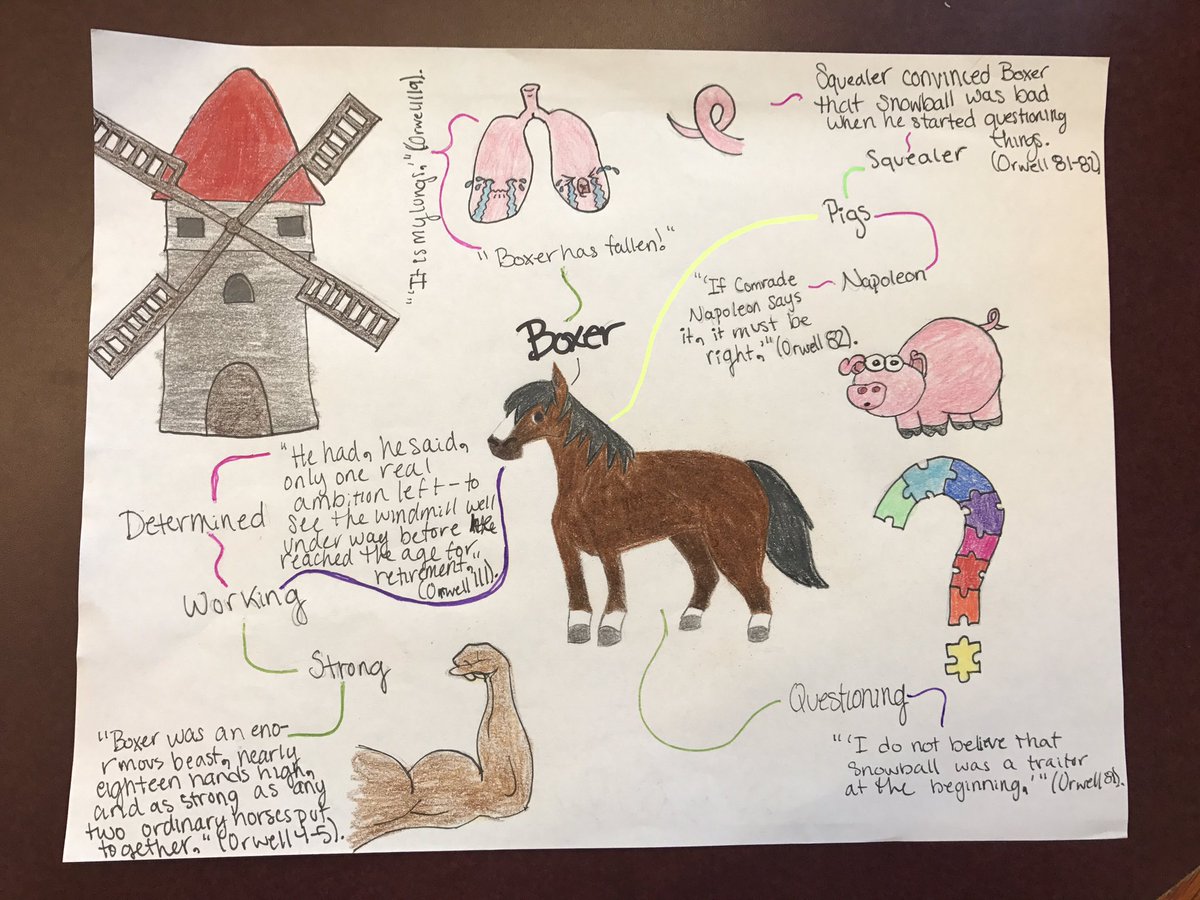 "'It is my lungs,'" (Orwell 119).
"Boxer has fallen!"
Boxer
Squealer convinced Boxer
that Snowball was bad
when he started questioning
things.
(Orwell 81-82)
Squealer
Pigs
Napoleon
"'If Comrade
Napoleon says
it, it must be
right,'" (Orwell 82).
"He had, he said,
only one real
ambition left-to
see the windmill well
under way before he
reached the age for
retirement,"
(Orwell 111).
Determined
Working
Strong
"Boxer was an eno-
rmous beast, nearly
eighteen hands high,
and as strong as any
two ordinary horses put
together," (Orwell 4-5).
Questioning
"'I do not believe that
Snowball was a traitor
at the beginning,'" (Orwell 81).